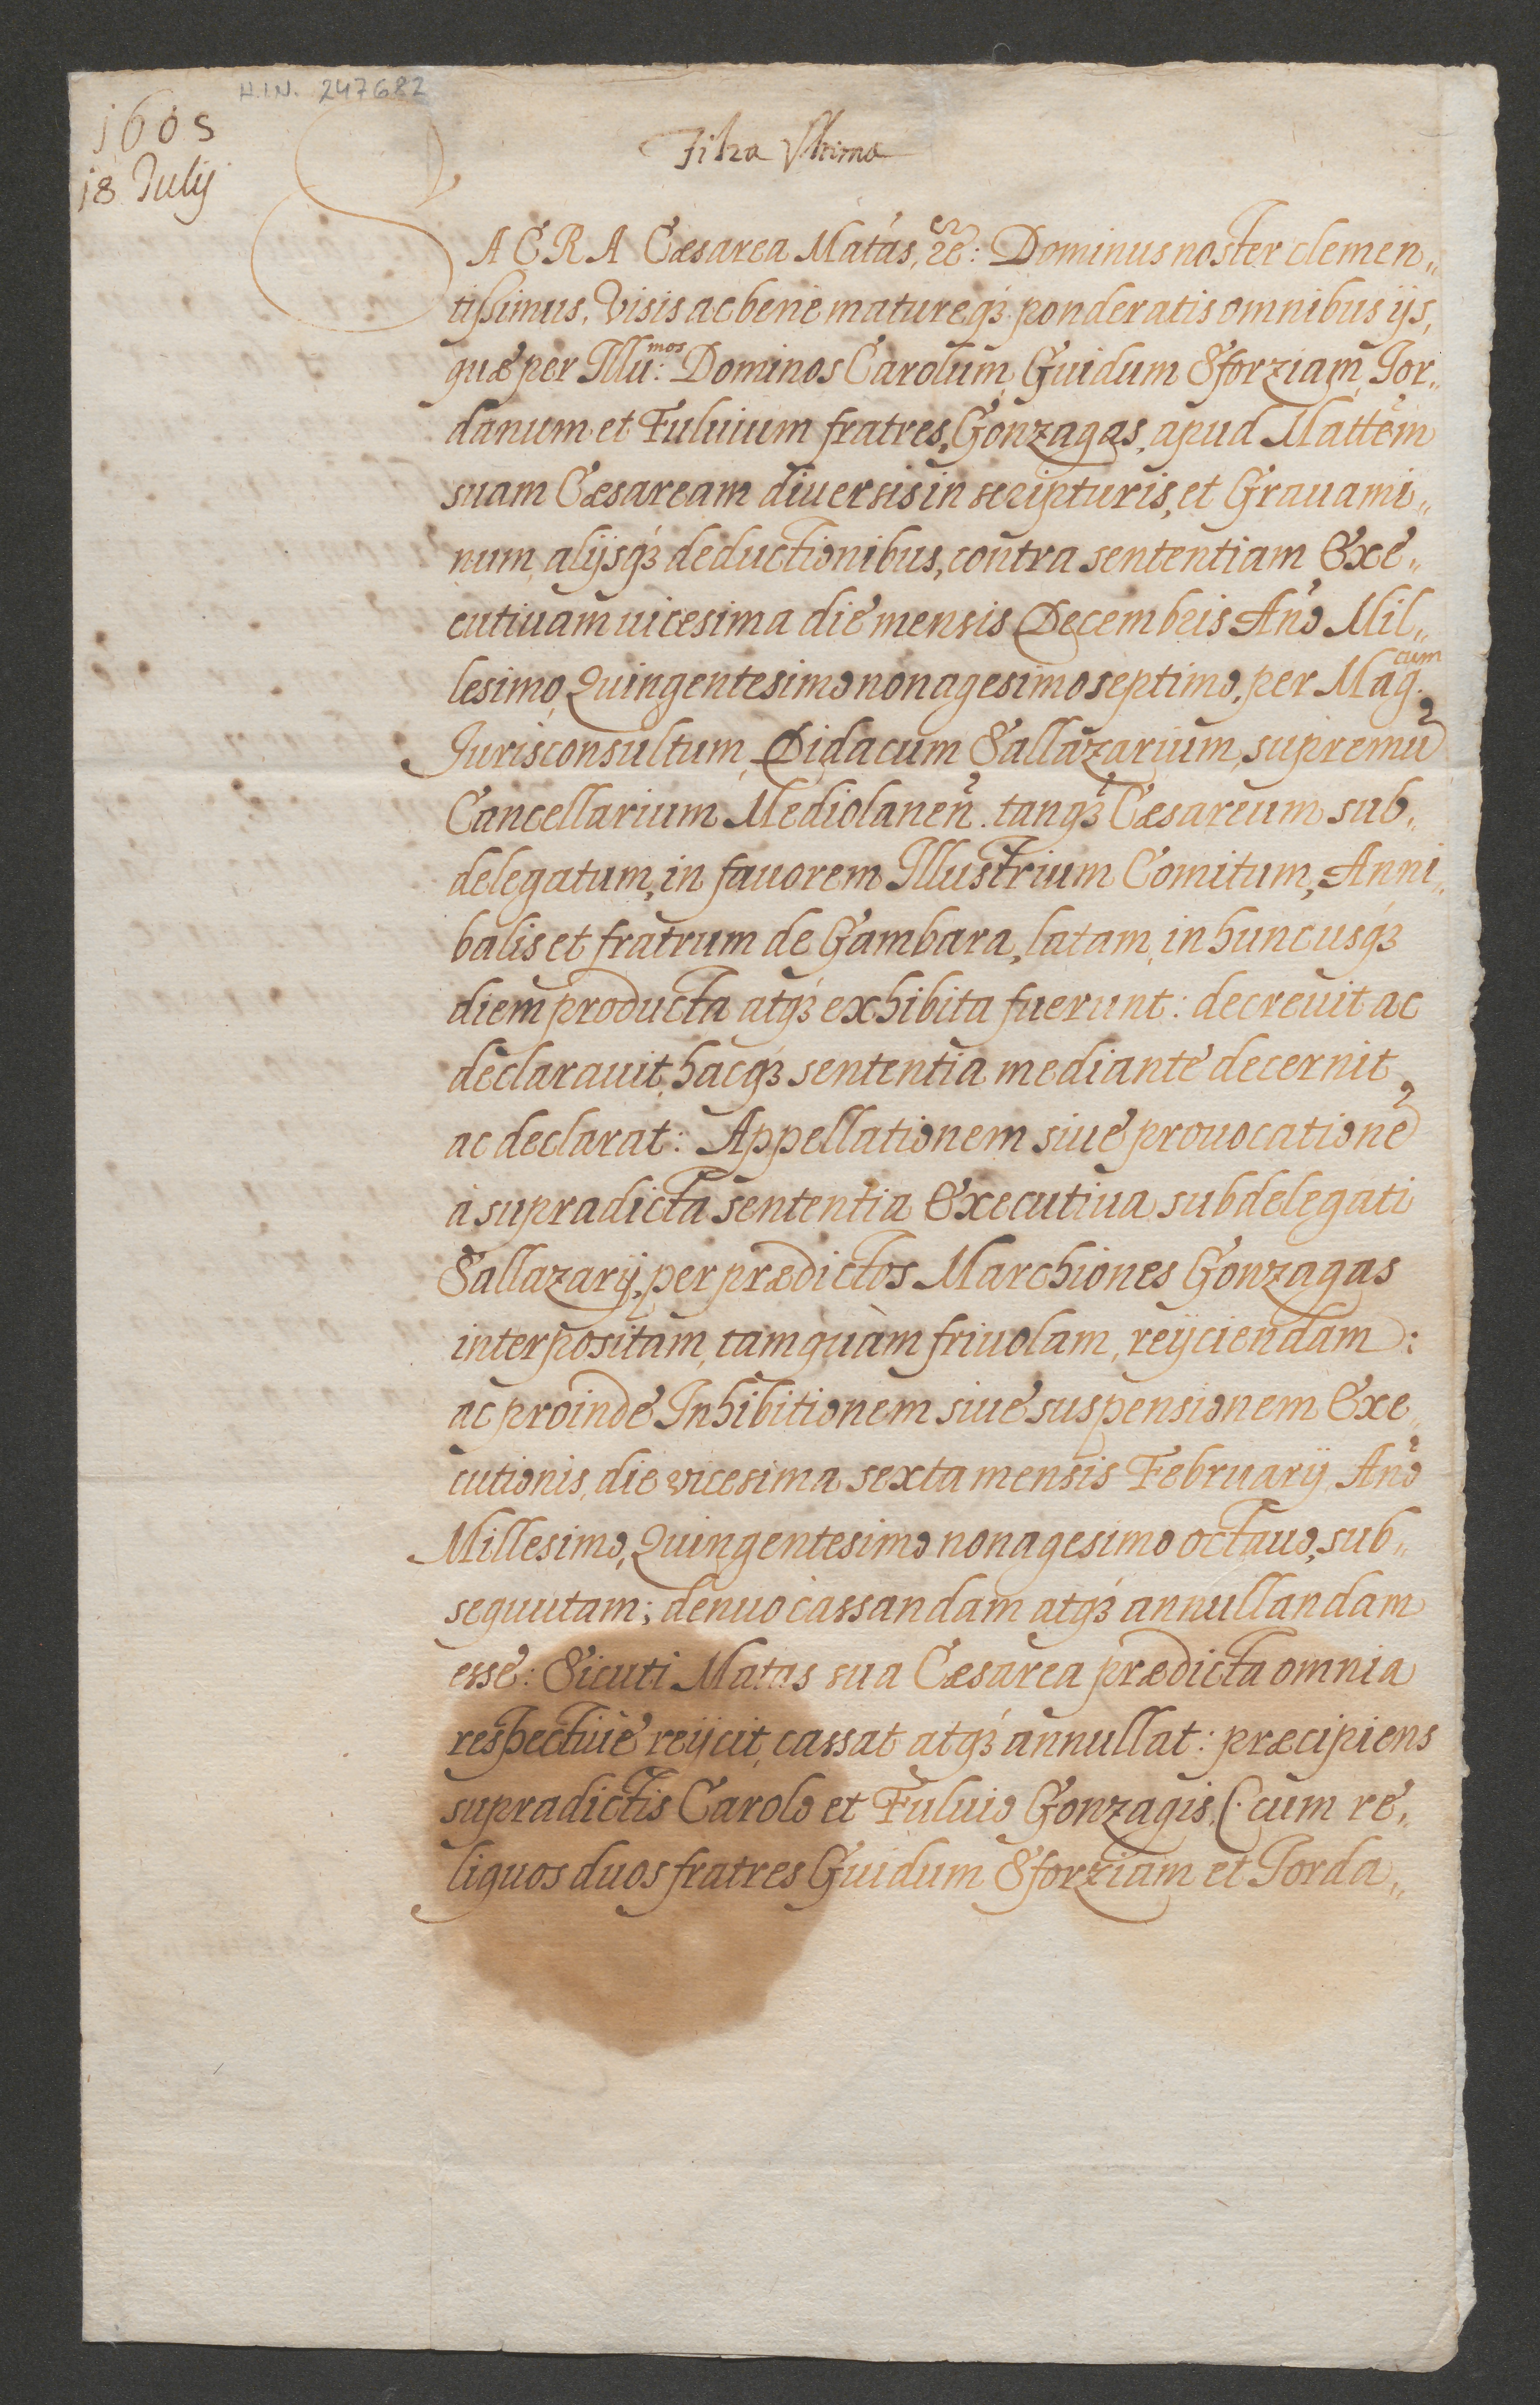 H.I.N. 247682
1605
18 Julij
Filza Vltima
SACRA Cæsarea Matas, &c: Dominus noster clemen„
tissimus, Visis ac bene matureq3 ponderatis omnibus ijs,
quæ per Illu:mos Dominos Carolum, Guidum Sforziam, Jor„
danum et Fuluium fratres, Gonzagas, apud Mattem
suam Cæsaream diuersis in scripturis, et Grauami„
num, alijsq3 deductionibus, contra sententiam Exe„
cutiuam uicesima die mensis Decembris Año Mil„
lesimo, Quingentesimo nonagesimo septimo, per Mag.cum
Jurisconsultum, Didacum Sallazarium, supremū
Cancellarium Mediolaneñ. tanq3 Cæsareum sub„
delegatum, in fauorem Illustrium Comitum, Anni„
balis et fratrum de Gambara, latam, in huncusq3
diem producta atq3 exhibita fuerunt: decreuit ac
declarauit, hacq3 sententia mediante decernit
ac declarat: Appellationem siue prouocationē
à supradicta sententia Executiua subdelegati
Sallazarij, per prædictos Marchiones Gonzagas
interpositam, tamquàm friuolam, reijciendam:
ac proinde Inhibitionem siue suspensionem Exe„
cutionis, die vicesima sexta mensis Februarij Año
Millesimo, Quingentesimo nonagesimo octauo, sub„
sequutam; denuo cassandam atq3 annullandam
esse: Sicuti Matas sua Cæsarea prædicta omnia
respectiuè reijcit, cassat atq3 annullat: præcipiens
supradictis Carolo et Fuluio Gonzagis, (: cum re„
liquos duos fratres Guidum Sforziam et Jorda„